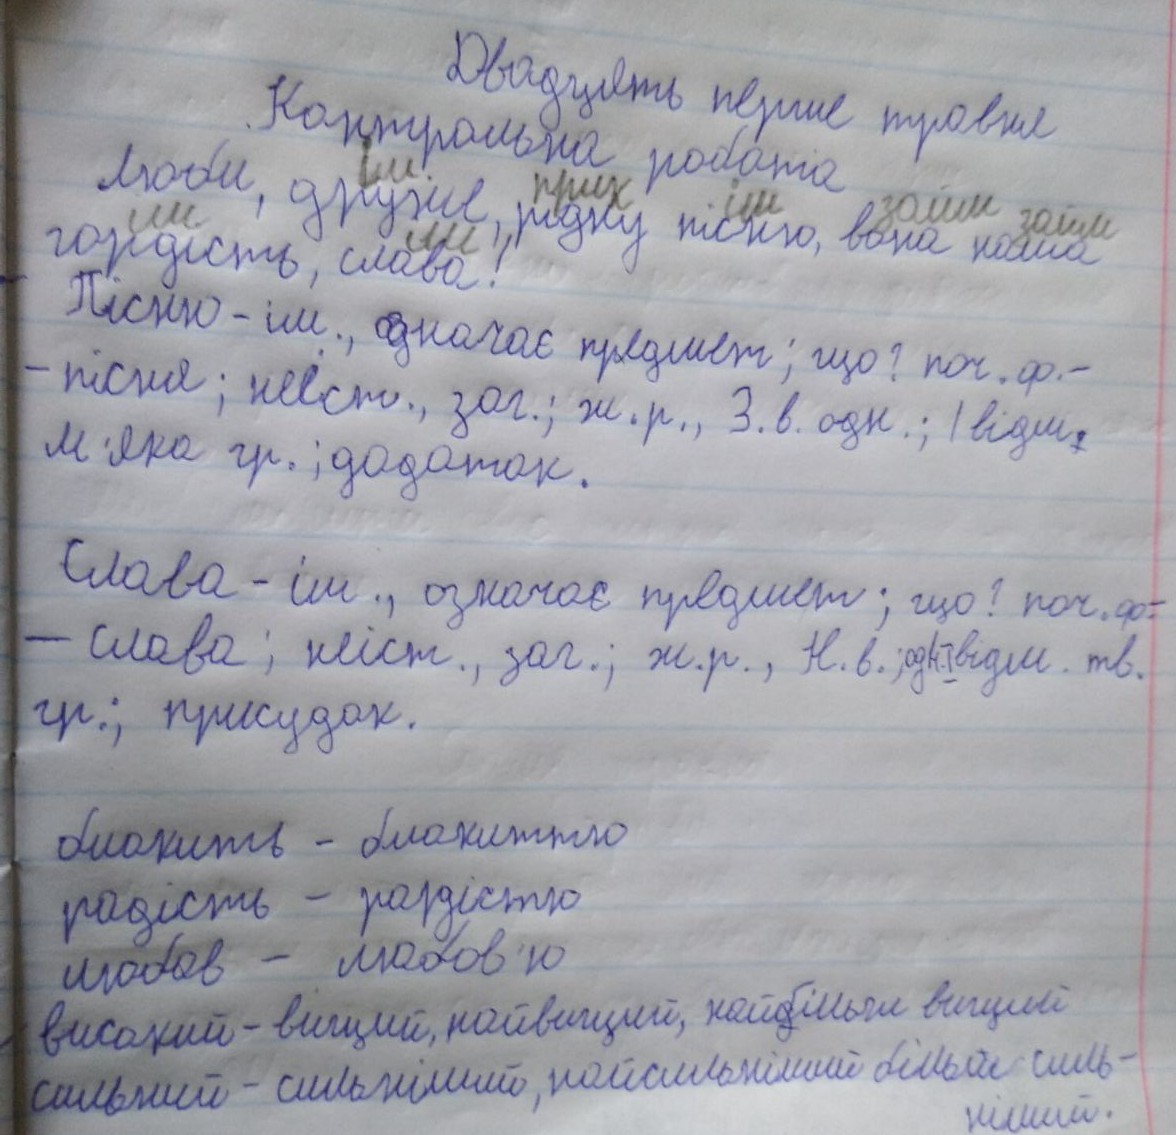 Двадцять перше травня
Контрольна робота
ім. прик ім займ займ
Люби, друже, рідну пісню, вона наша
ім ім
гордість, слава!
Пісню - ім., означає предмет; що? поч. ф.-
- пісня; неіст., заг.; ж.р., З.в. одн.; І відм.,
м'яка гр.; додаток.
Слава - ім., означає предмет; що? поч. ф-
- слава; неіст., заг.; ж.р., Н.в.; одн. І відм. тв.
гр.; присудок.
блакить - блакиттю
радість - радістю
любов - любов'ю
високий - вищий, найвищий, найбільш вищий
сильний - сильніший, найсильніший більш силь-
ніший.